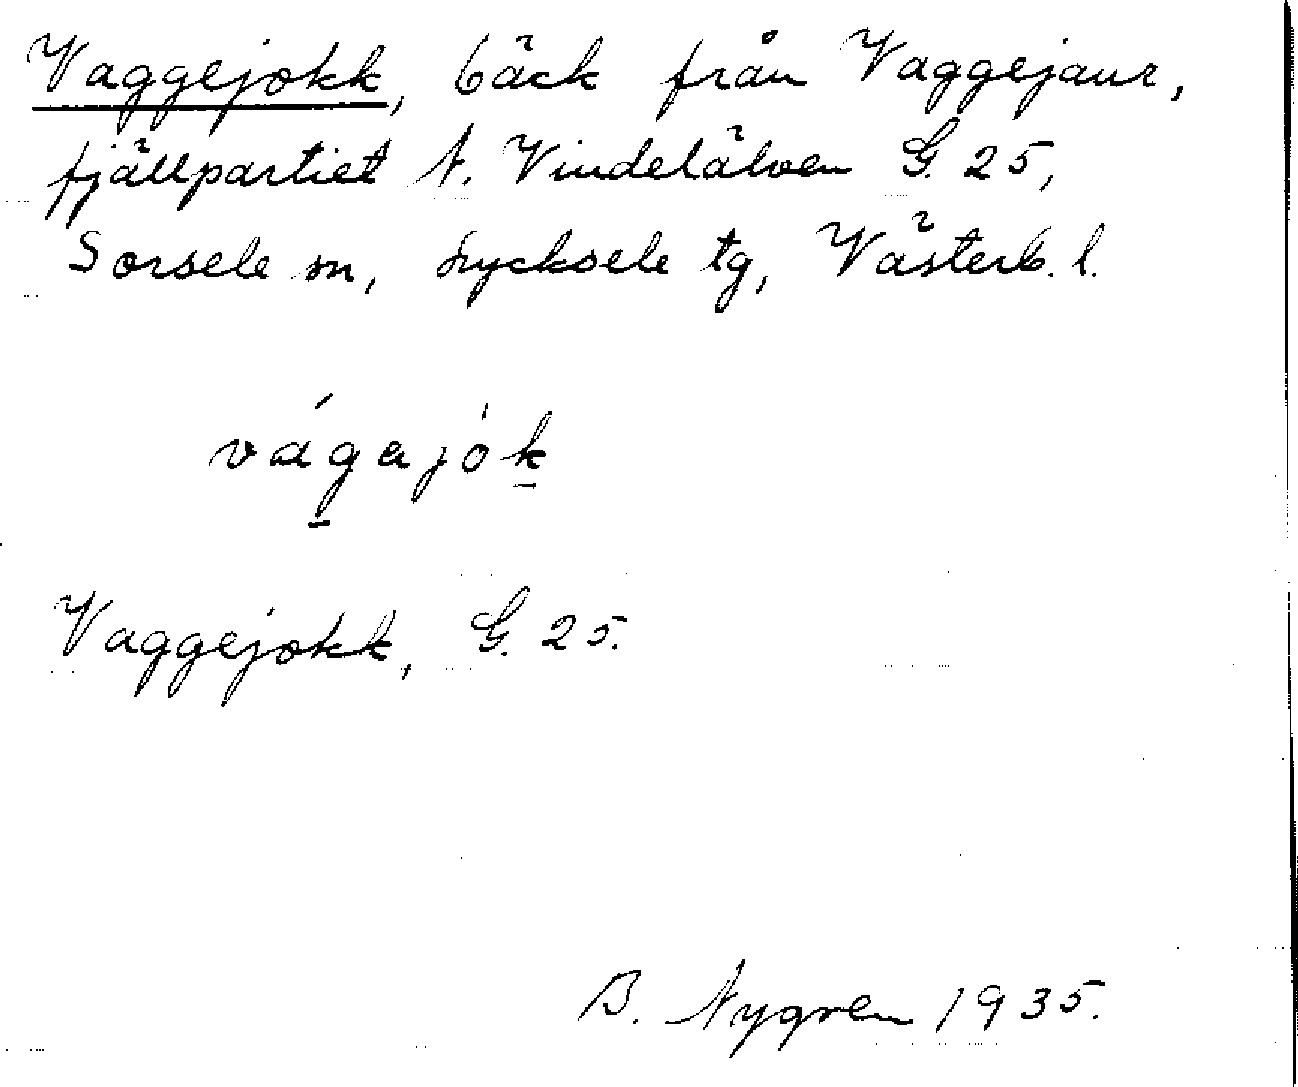 Vaggejokk, bäck från Vaggejaur,
fjällpartiet N. Vindelälven G. 25,
Sorsele sn, Lycksele tg, Västerb. l.
vág̲ajók̲
Vaggejokk, G. 25.
B. Nygren 1935.